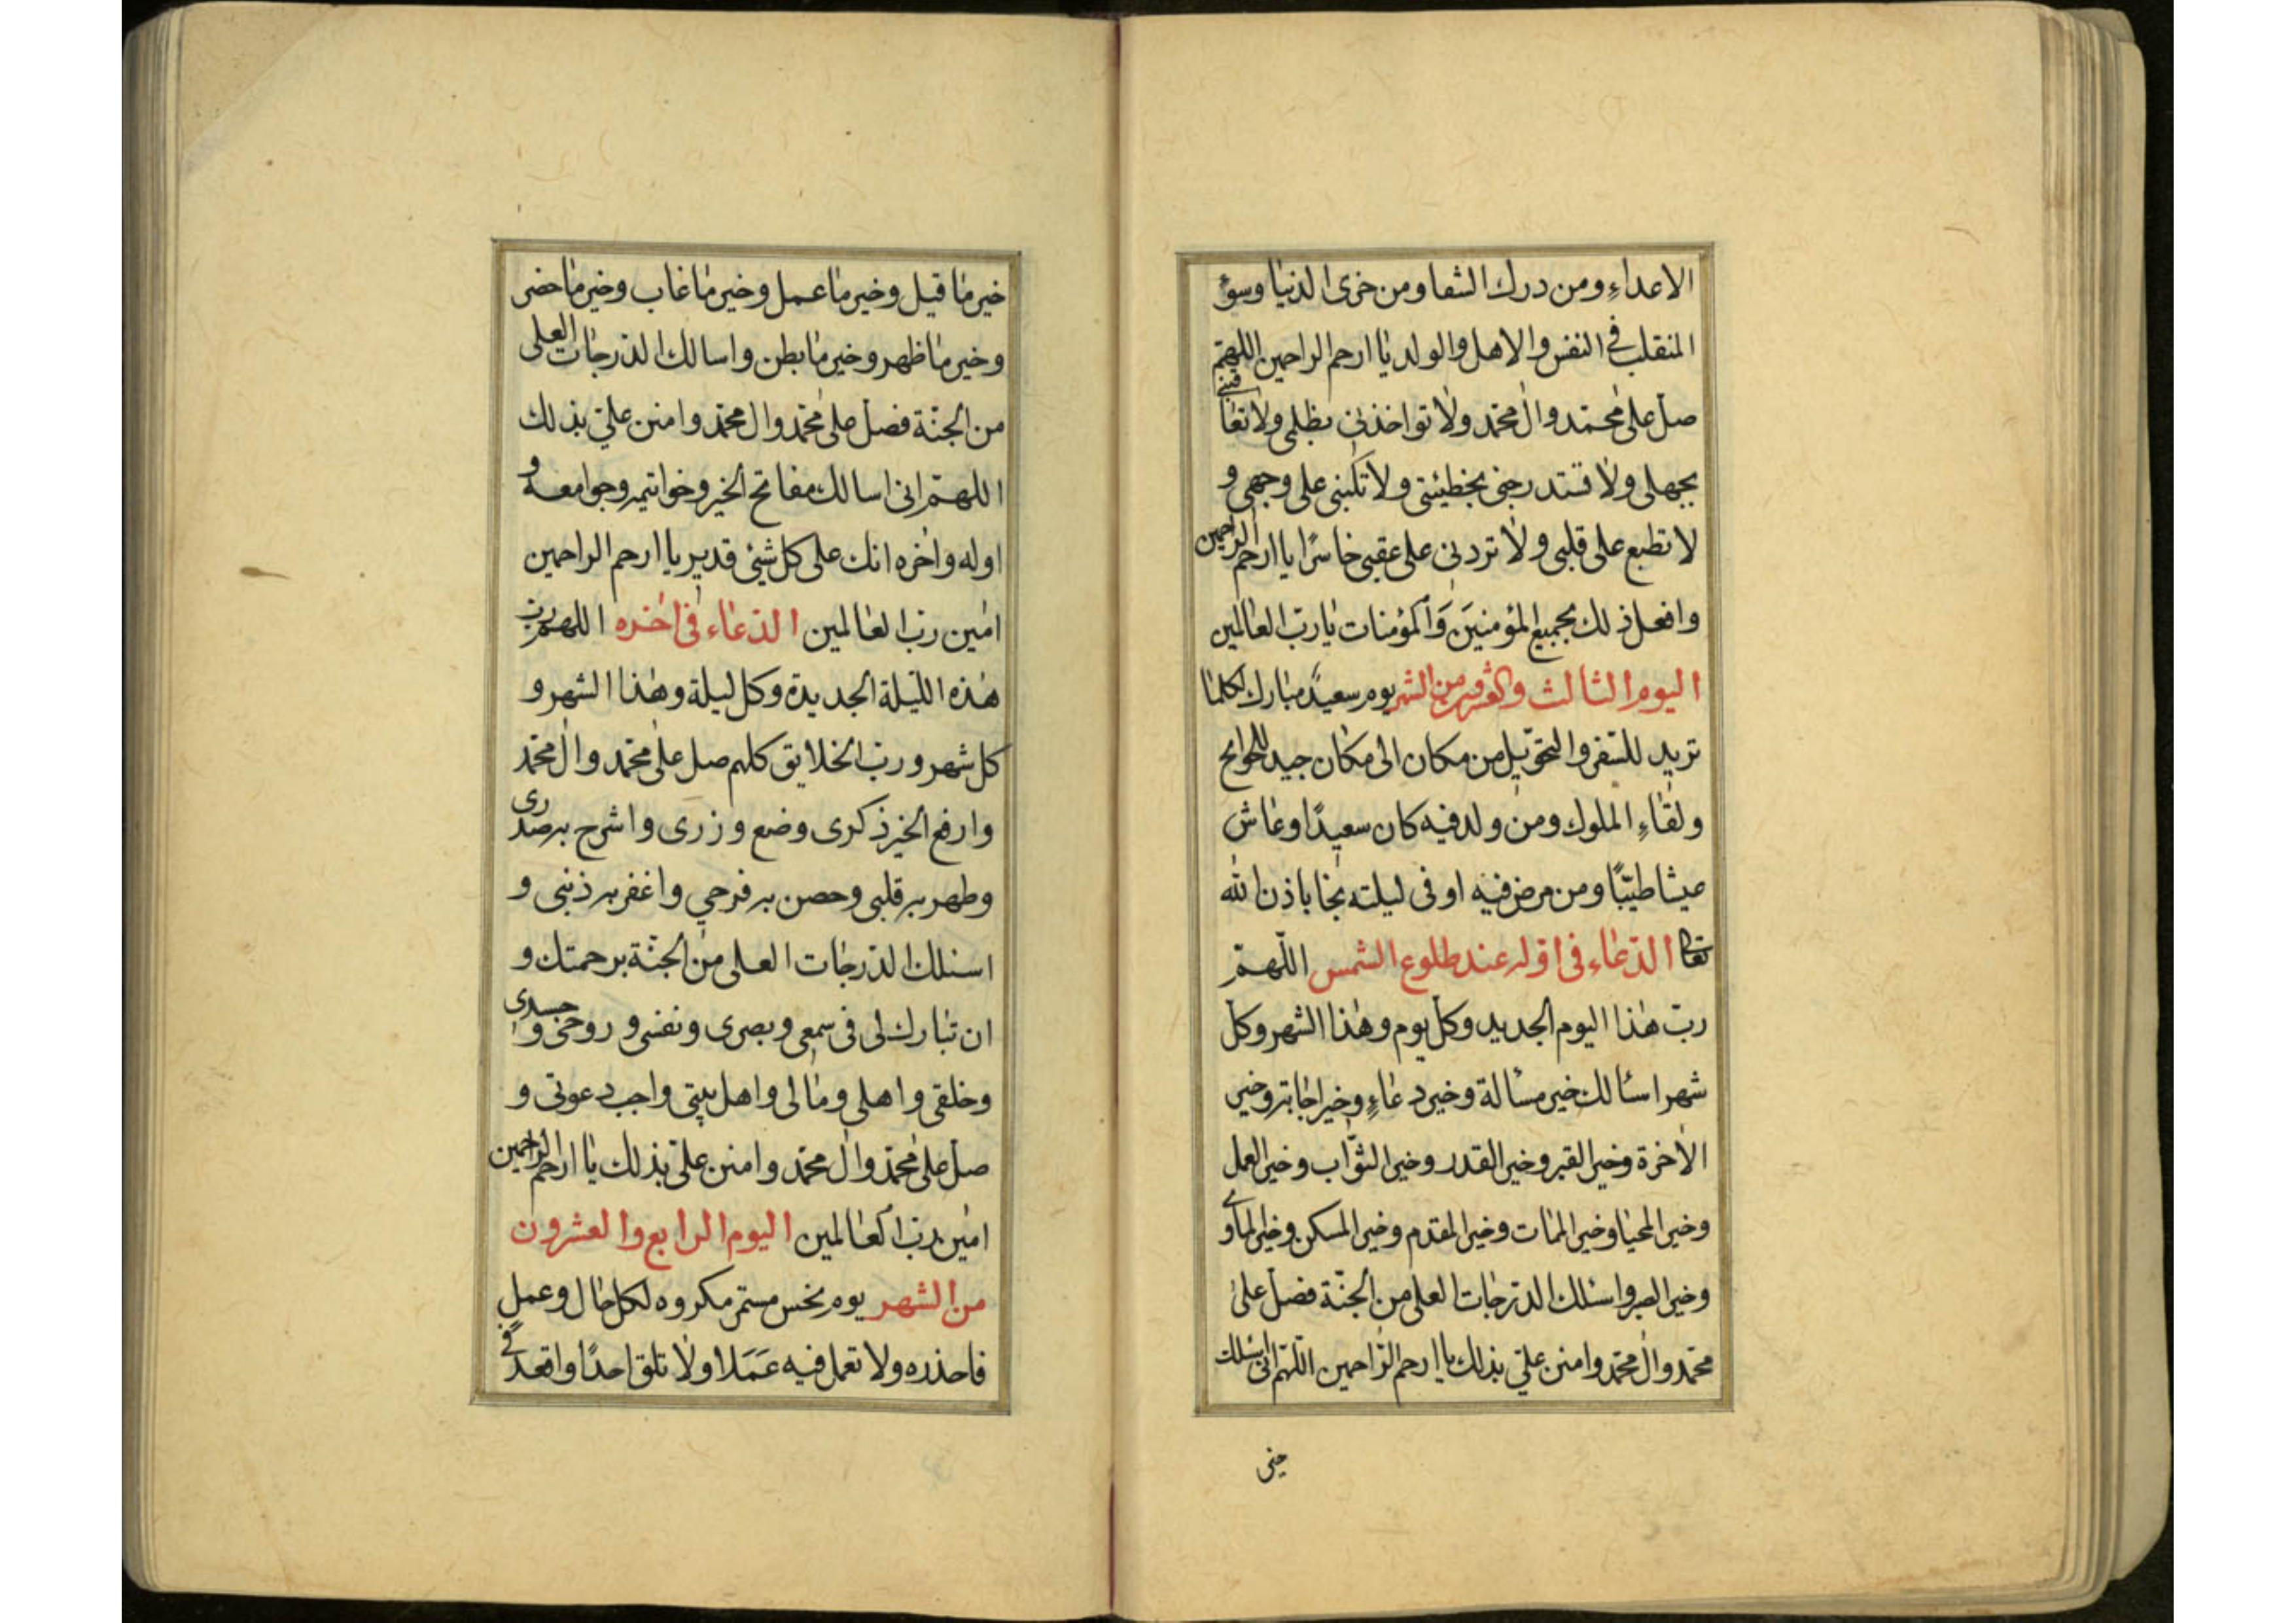 الاعداءِ ومن درك الشقا ومن خزی الدنیا وسوء
المنقلب فی النفس والاهل والولد یا ارحم الراحمین اللهمّ
صل علی محمّد وال محمّد ولا تواخذنی بظلمی ولا تعاقبنی
بجهلی ولا تستدرجنی بخطیئتی ولا تکبنی علی وجهی و
لا تطبع علی قلبی ولا تردنی علی عقبی خاسرًا یا ارحم الراحمین
وافعل ذلك بجمیع المؤمنینَ وَالمؤمنات یا ربّ العالمین
الیوم الثالث والعشرین من الشهر یوم سعیدً مبارك لکلما
ترید للسّفر والتحوّیل من مکان الی مکان جید للحوایج
ولقاءِ الملوك ومن ولد فیه کان سعیدًا وعاش
عیشا طیّبًا ومن مرض فیه او فی لیلته نجا باذن الله
تعا الدّعاء فی اوّله عند طلوع الشمس اللّهمّ
ربّ هذا الیوم الجدید وکل یوم وهذا الشهر وکل
شهر اسألك خیر مسألة وخیر دعاءٍ وخیر اجابة وخیر
الاخرة وخیر القبر وخیر القدر وخیر الثوّاب وخیر العمل
وخیر المحیا وخیر الممات وخیر المقدم وخیر المسکن وخیر الماوی
وخیر الصبر واسئلك الدّرجات العلی من الجنّة فصل علی
محمّد وال محمّد وامنن علیّ بذلك یا ارحم الرّاحمین اللّهمّ انی اسئلك
خیر
خیر ما قیل وخیر ما عمل وخیر ما غاب وخیر ما حضر
وخیر ما ظهر وخیر ما بطن واسالك الدّرجات العلی
من الجنّة فصل علی محمّد وال محمّد وامنن علیّ بذلك
اللهمّ انی اسالك مفاتح الخیر وخواتیمه وجوامعه و
اوله واخره انك علی کل شیئ قدیر یا ارحم الراحمین
امین ربّ العالمین الدّعاء فی اخره اللهمّ ربّ
هذه اللّیلة الجدیدة وکل لیلة وهذا الشهر و
کل شهر وربّ الخلایق کلهم صل علی محمّد وال محمّد
وارفع الخیر ذکری وضع وزری واشرح به صدری
وطهر به قلبی وحصن به فرجی واغفر به ذنبی و
اسئلك الدّرجات العلی من الجنّة برحمتك و
ان تبارك لی فی سمعی وبصری ونفسی وروحی وجسدی
وخلقی واهلی ومالی واهل بیتی واجب دعوتی و
صل علی محمّد وال محمّد وامنن علیّ بذلك یا ارحم الراحمین
امین ربّ العالمین الیوم الرابع والعشرون
من الشهر یوم نحس مستمر مکروه لکل حال وعمل
فاحذره ولا تعمل فیه عَمَلا ولا تلق احدًا واقعد فی